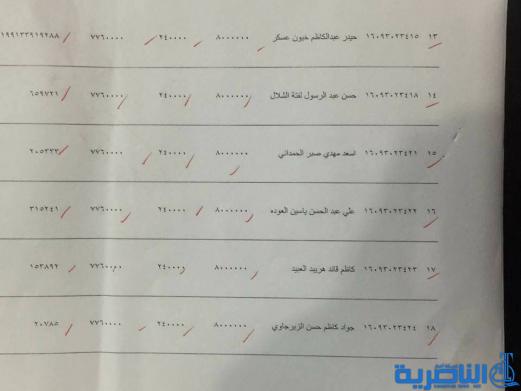 ١٣ ١٦٠٩٣٠٢٣٤١٥ حيدر عبدالكاظم خيون عسكر ٨٠٠٠٠٠٠ ٢٤٠٠٠٠ ٧٧٦٠٠٠٠ ١٩٩١٣٣٩١٩٢٨٨
١٤ ١٦٠٩٣٠٢٣٤١٨ حسن عبد الرسول لفتة الشلال ٨٠٠٠٠٠٠ ٢٤٠٠٠٠ ٧٧٦٠٠٠٠ ٦٥٩٧٢١
١٥ ١٦٠٩٣٠٢٣٤٢١ اسعد مهدي صبر الحمداني ٨٠٠٠٠٠٠ ٢٤٠٠٠٠ ٧٧٦٠٠٠٠ ٢٠٥٣٣٣
١٦ ١٦٠٩٣٠٢٣٤٢٢ علي عبد الحسن ياسين العوده ٨٠٠٠٠٠٠ ٢٤٠٠٠٠ ٧٧٦٠٠٠٠ ٣١٥٢٤١
١٧ ١٦٠٩٣٠٢٣٤٢٣ كاظم قائد هربيد العبيد ٨٠٠٠٠٠٠ ٢٤٠٠٠٠ ٧٧٦٠٠٠٠ ١٥٣٨٩٢
١٨ ١٦٠٩٣٠٢٣٤٢٤ جواد كاظم حسن الزيرجاوي ٨٠٠٠٠٠٠ ٢٤٠٠٠٠ ٧٧٦٠٠٠٠ ٢٠٧٨٥
الناصرية